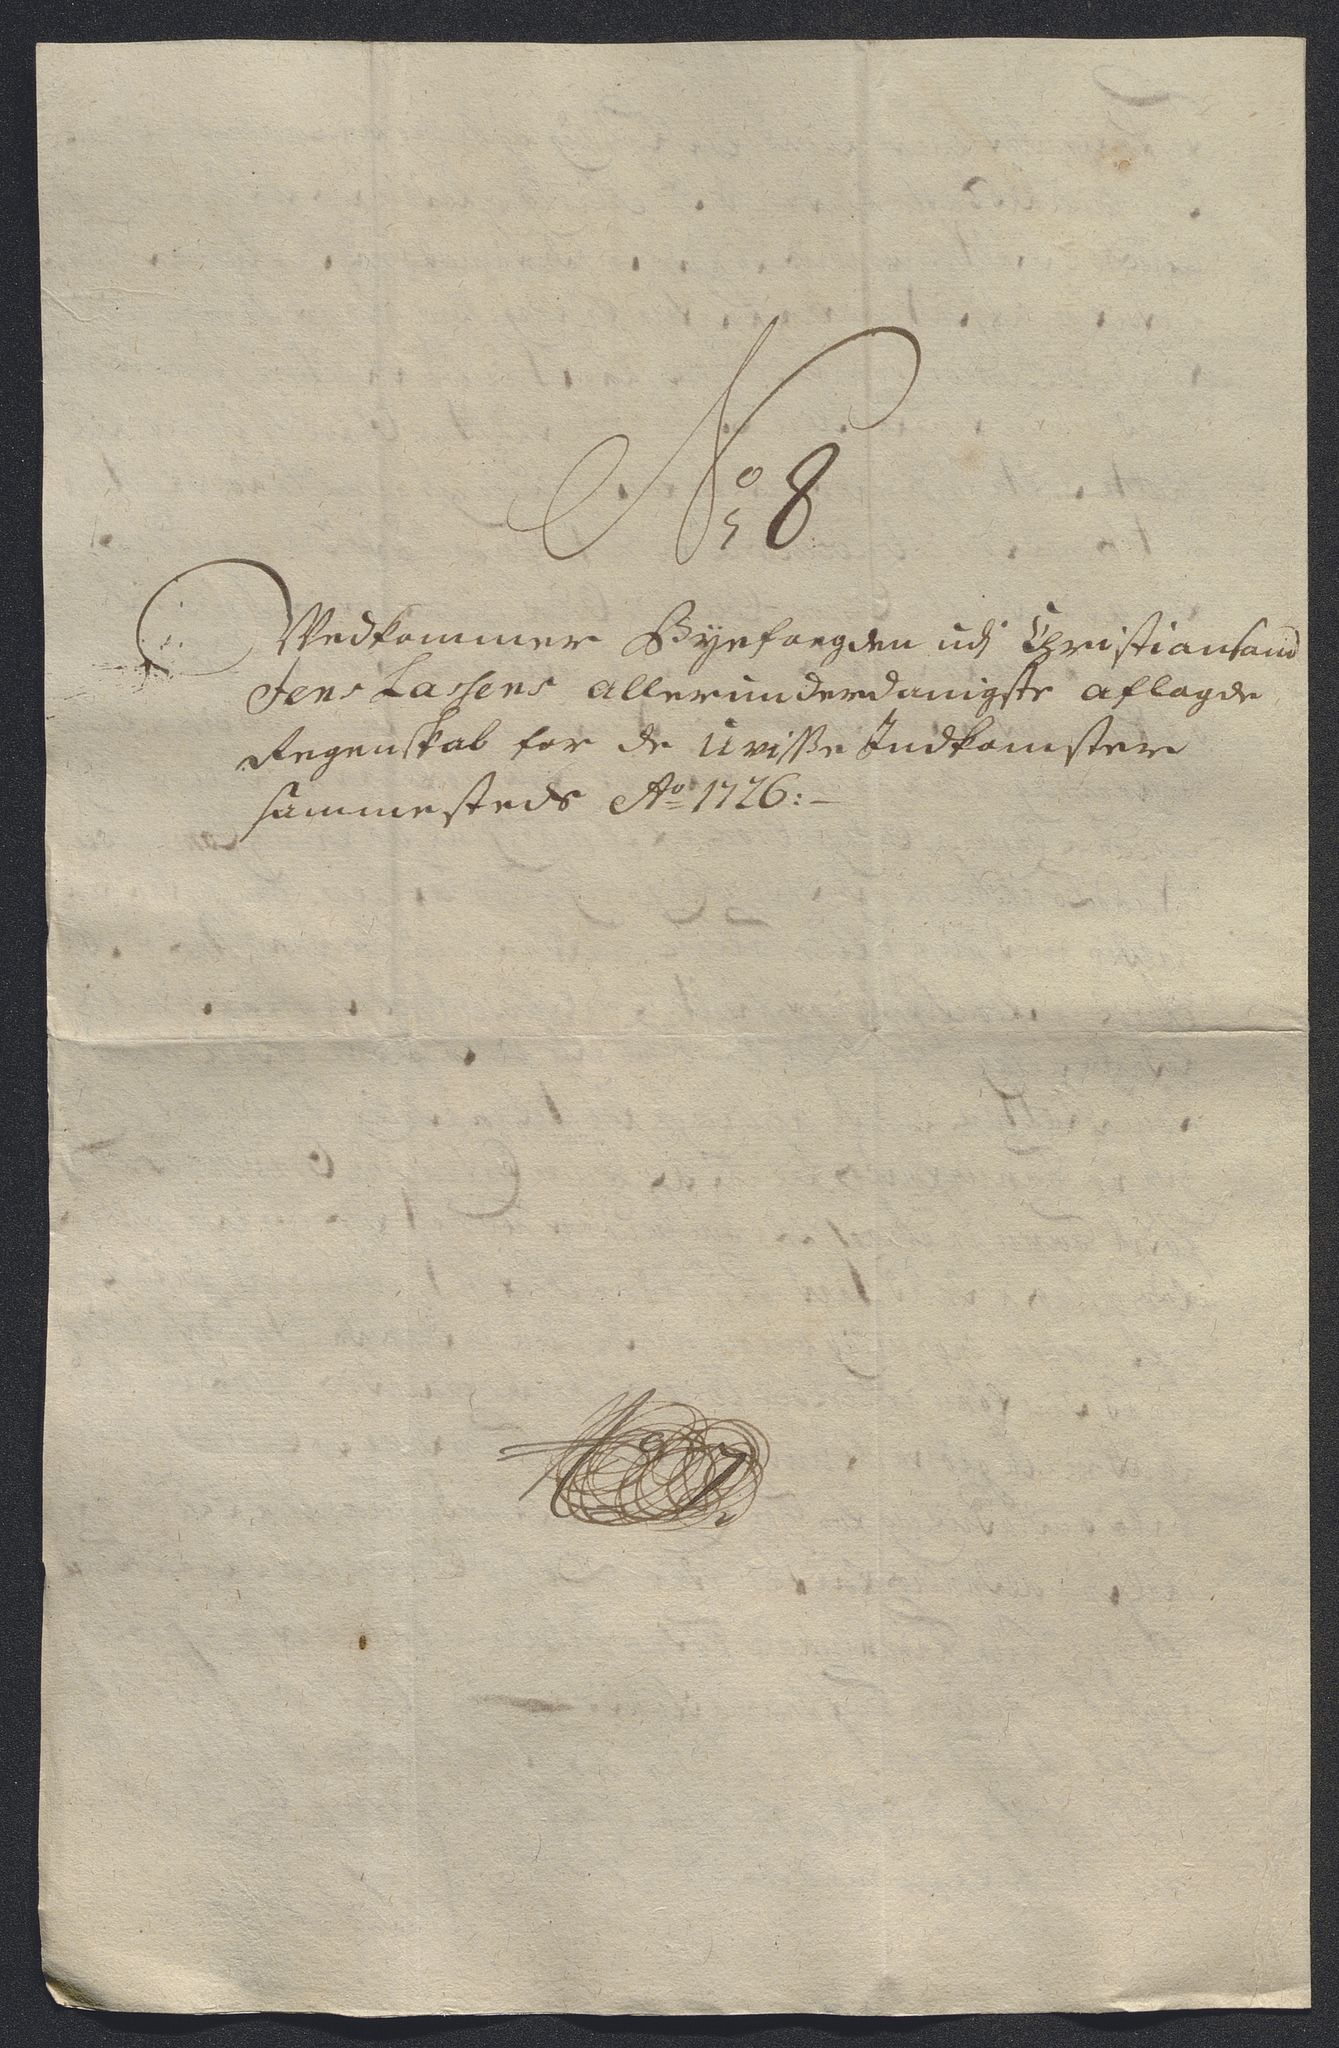 No 8
Vedkommer Byefogden udj Christiansand
Jens Lassens allerunderdanigste aflagde
Regenskab for de Uvisse Indkomster
sammesteds Ao 1726:-